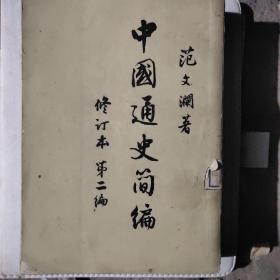 范文瀾著
中國通史简编
修订本 第二編